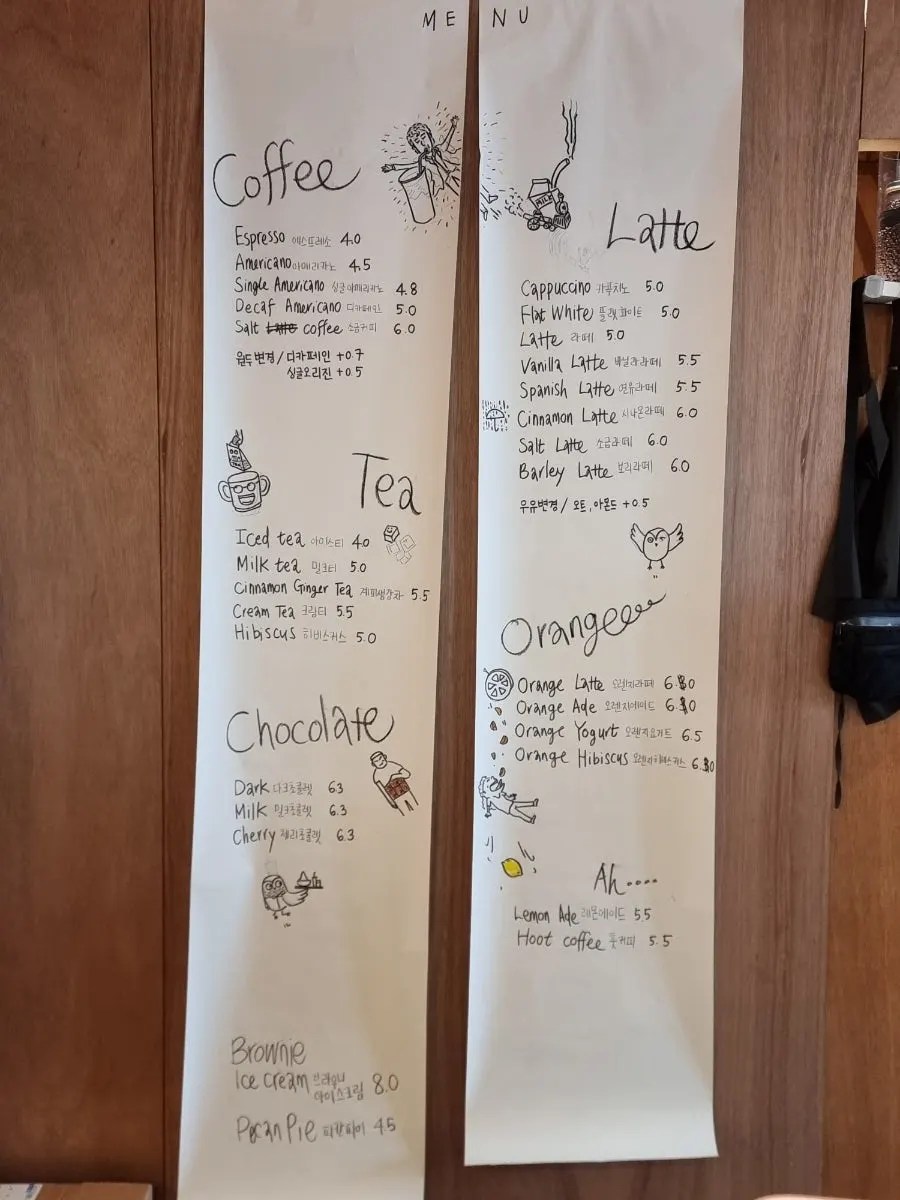 MENU
Coffee
Espresso 에스프레소 4.0
Americano 아메리카노 4.5
Single Americano 싱글아메리카노 4.8
Decaf Americano 디카페인 5.0
Salt coffee 소금커피 6.0
원두변경 / 디카페인 +0.7
싱글오리진 +0.5
Tea
Iced tea 아이스티 4.0
Milk tea 밀크티 5.0
Cinnamon Ginger Tea 계피생강차 5.5
Cream Tea 크림티 5.5
Hibiscus 히비스커스 5.0
Chocolate
Dark 다크초콜렛 6.3
Milk 밀크초콜렛 6.3
Cherry 체리초콜렛 6.3
Brownie
Ice cream 브라우니
아이스크림 8.0
Pecan Pie 피칸파이 4.5
MILK
Latte
Cappuccino 카푸치노 5.0
Flat White 플랫화이트 5.0
Latte 라떼 5.0
Vanilla Latte 바닐라라떼 5.5
Spanish Latte 연유라떼 5.5
Cinnamon Latte 시나몬라떼 6.0
Salt Latte 소금라떼 6.0
Barley Latte 보리라떼 6.0
우유변경 / 오트, 아몬드 +0.5
Orangeeee
Orange Latte 오렌지라떼 6.0
Orange Ade 오렌지에이드 6.0
Orange Yogurt 오렌지요거트 6.5
Orange Hibiscus 오렌지히비스커스 6.0
Ah....
Lemon Ade 레몬에이드 5.5
Hoot coffee 훗커피 5.5